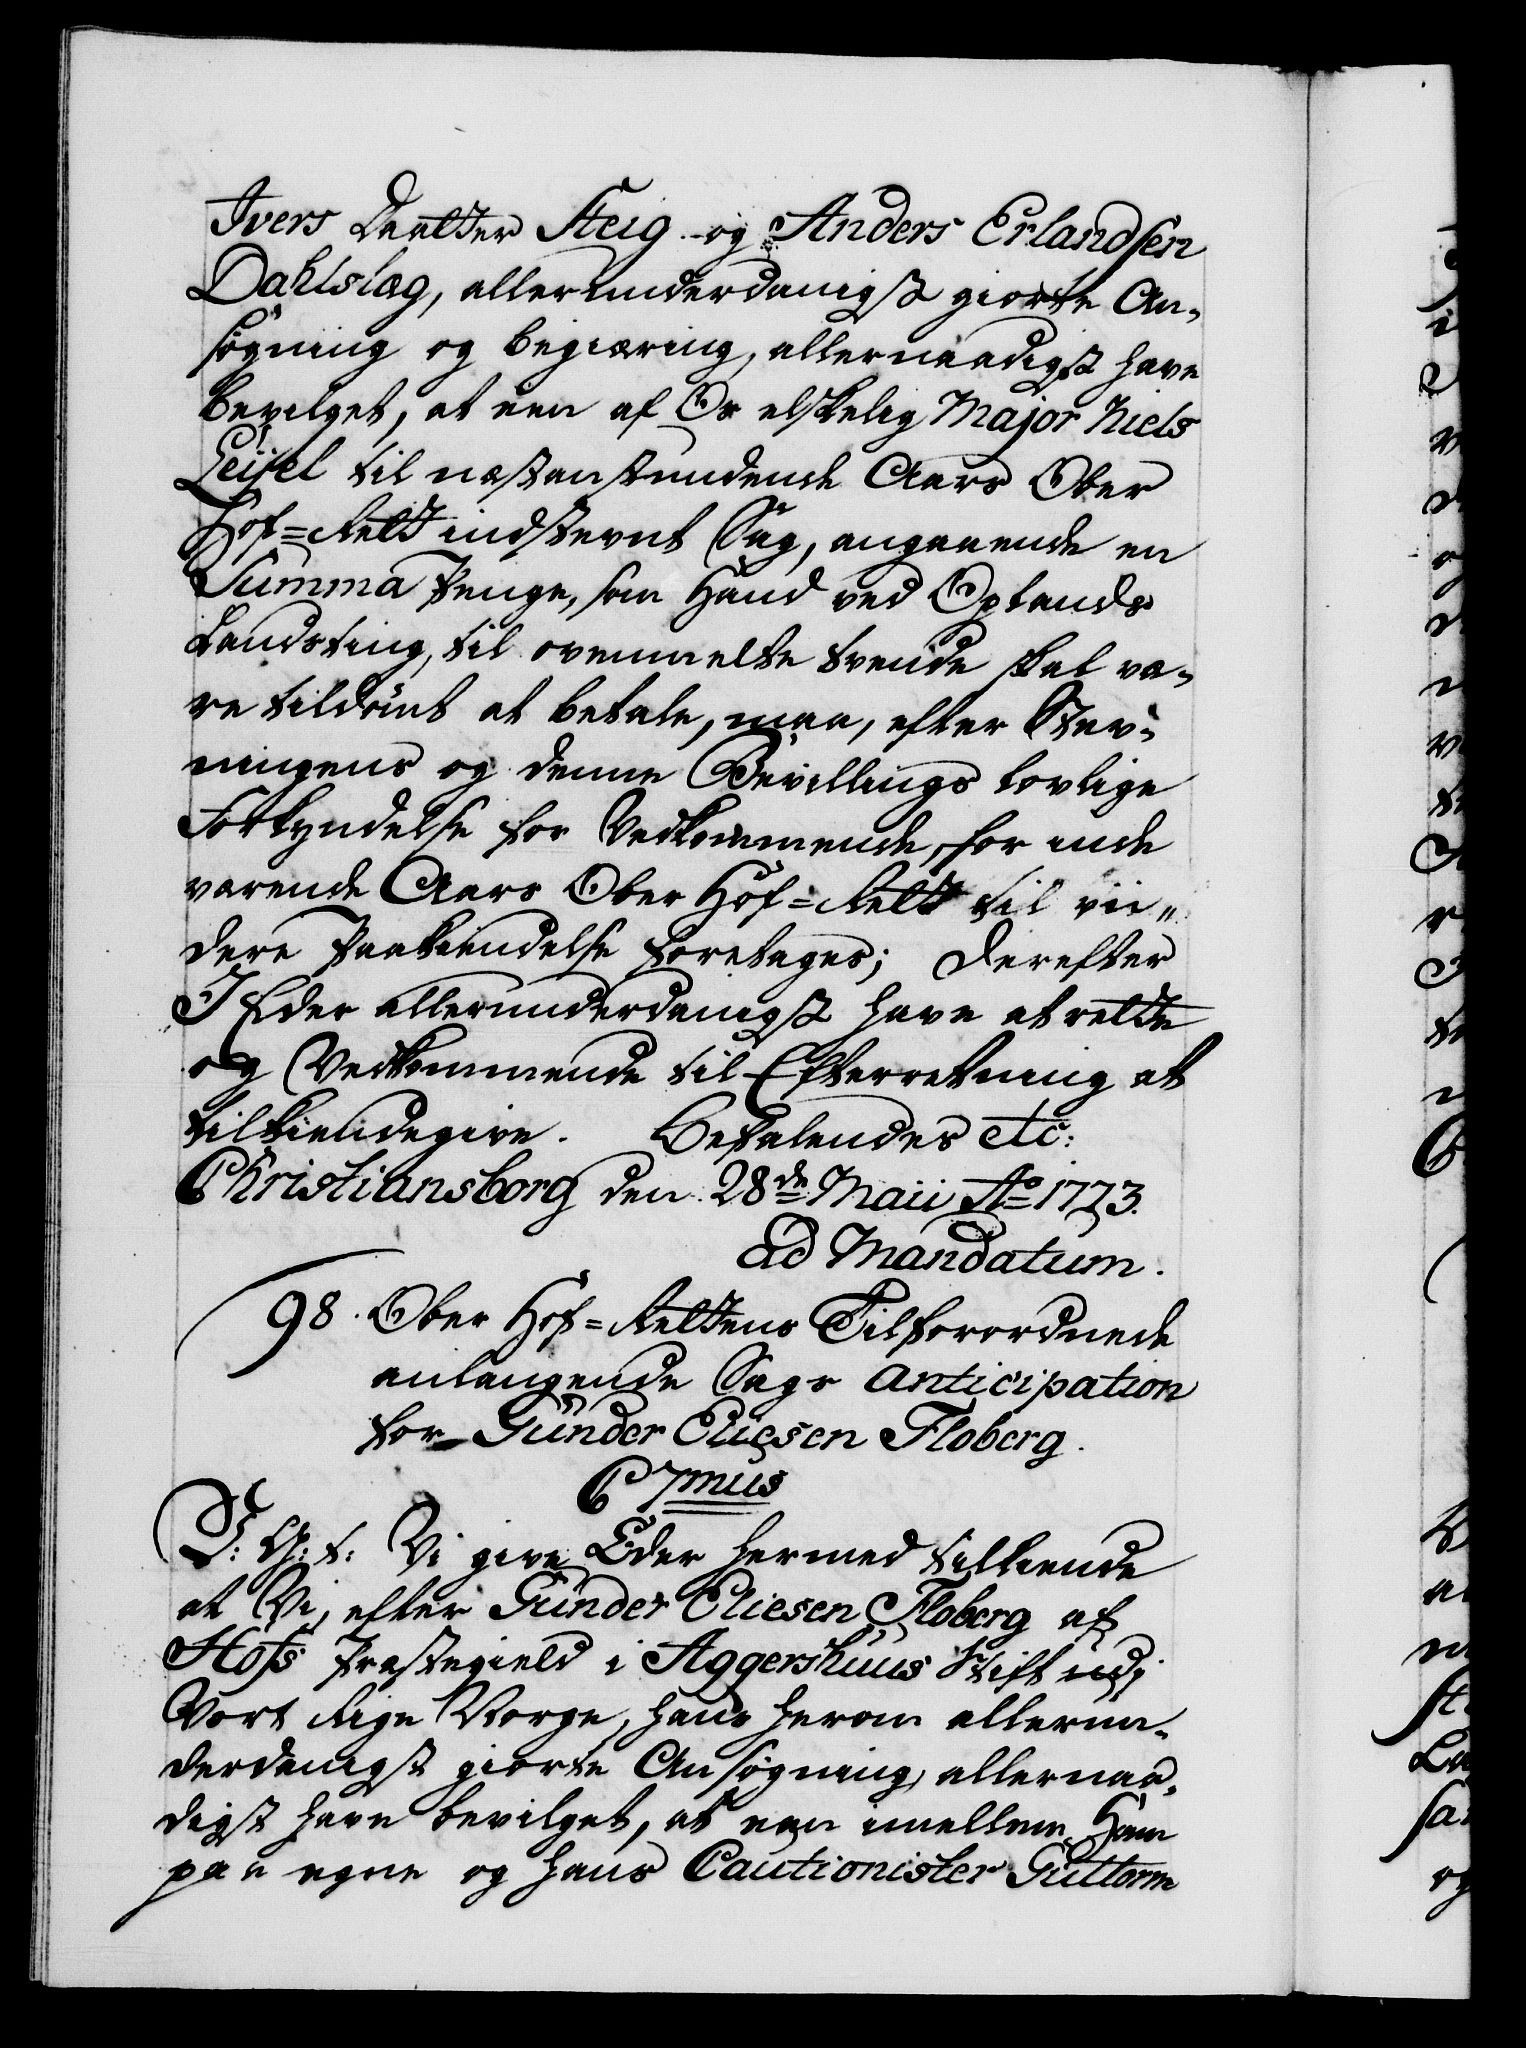 Ivers Daatter Steig og Anders Erlandsen
Dahlslæg, allerunderdanigst giorte An-
søgning og begiæring, allernaadigst have
bevilget, at een af Os elskelig Major Niels
Leijel til næstanstundende Aars Ober
Hof=Rett indstevnt Sag, angaaende en
Summa Penge, som Hand ved Oplands
Landsting, til ovenmelte tvende skal væ-
re tildømt at betale, maa, efter Stev-
ningens og denne Bevillings lovlige
Forkyndelse for Vedkommende, for inde
værende Aars Ober Hof=Rett til vii-
dere Paakiendelse foretages; Derefter
I Eder allerunderdanigst have at rette
og Vedkommende til Efterretning at
tilkiendegive. Befalendes etc:
Christiansborg den 28de Maii Ao 1773.
ad Mandatum.
98. Ober Hof=Rettens Tilforordnede
anlangende Sags Anticipation
for Günder Eliesen Floberg.
C 7mus
V: G: t: Vi give Eder hermed tilkiende
at Vi, efter Günder Eliesen Floberg af
Hofs Præstegield i Aggershuus Stift udi
Vort Rige Norge, hans herom allerun-
derdanigst giorte Ansøgning, allernaa-
digst have bevilget, at een imellem Ham
paa egne og hans Cautionister Guttorm